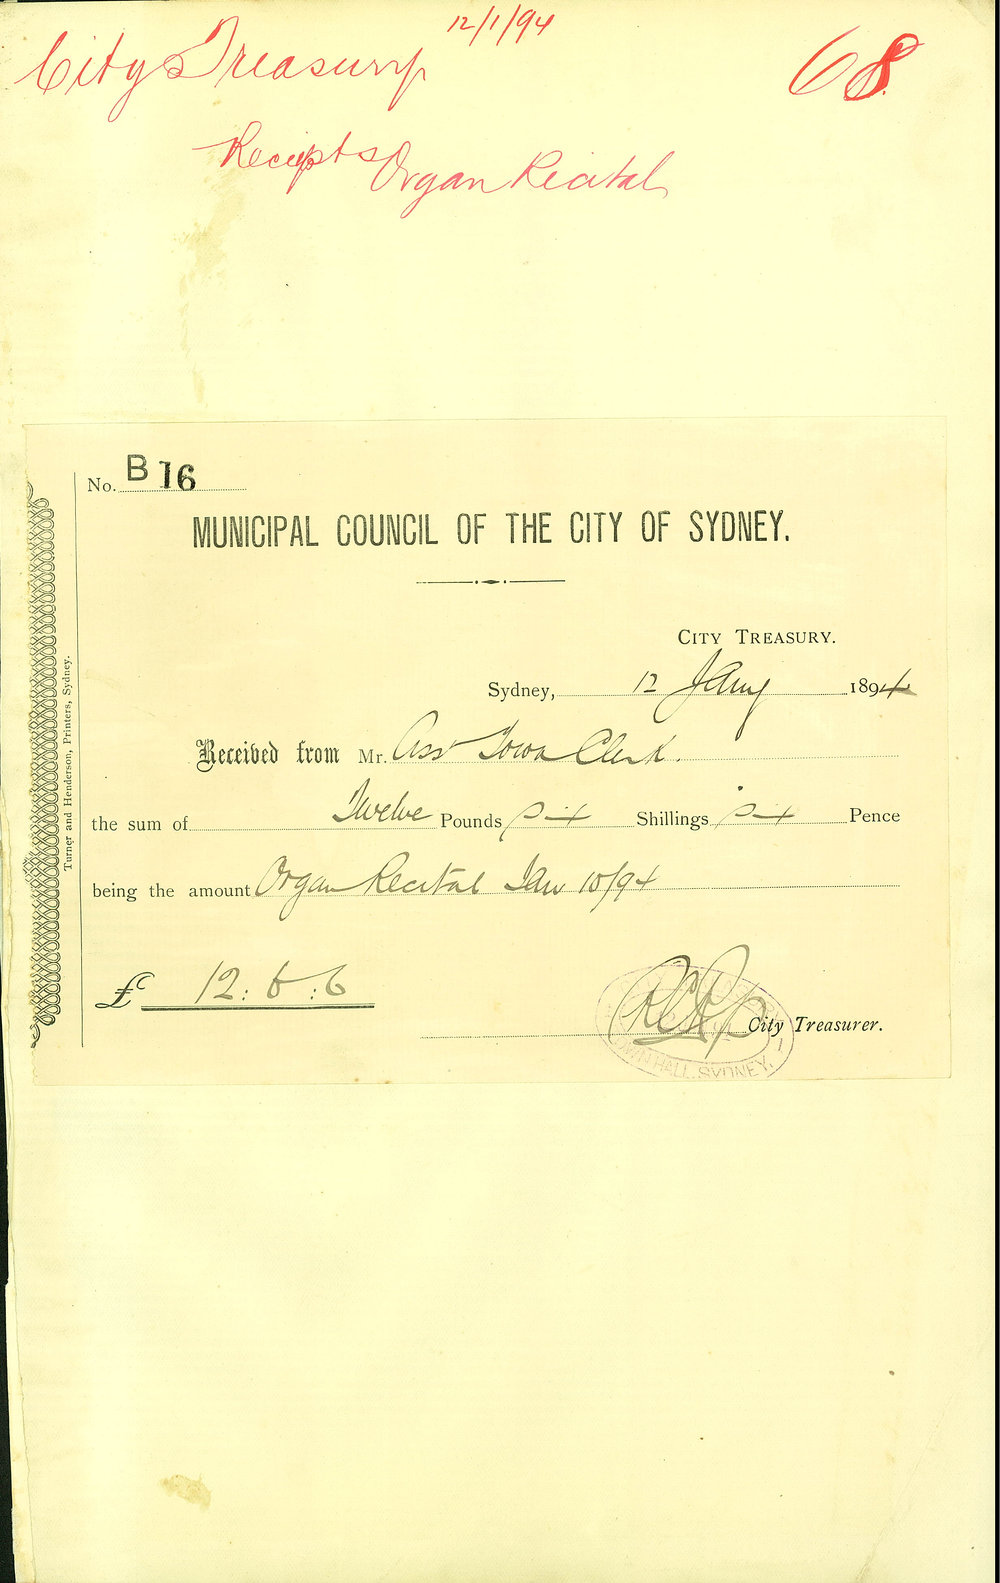 12/1/94
City Treasury
68.
Receipts Organ Recital
No. B 16
MUNICIPAL COUNCIL OF THE CITY OF SYDNEY.
CITY TREASURY.
Sydney, 12 Jany 1894
Received from Mr. Asst Town Clerk.
the sum of Twelve Pounds Six Shillings Six Pence
being the amount Organ Recital Jan 10/94
£ 12: 6 : 6
City Treasurer.
TOWN HALL, SYDNEY.
Turner and Henderson, Printers, Sydney.